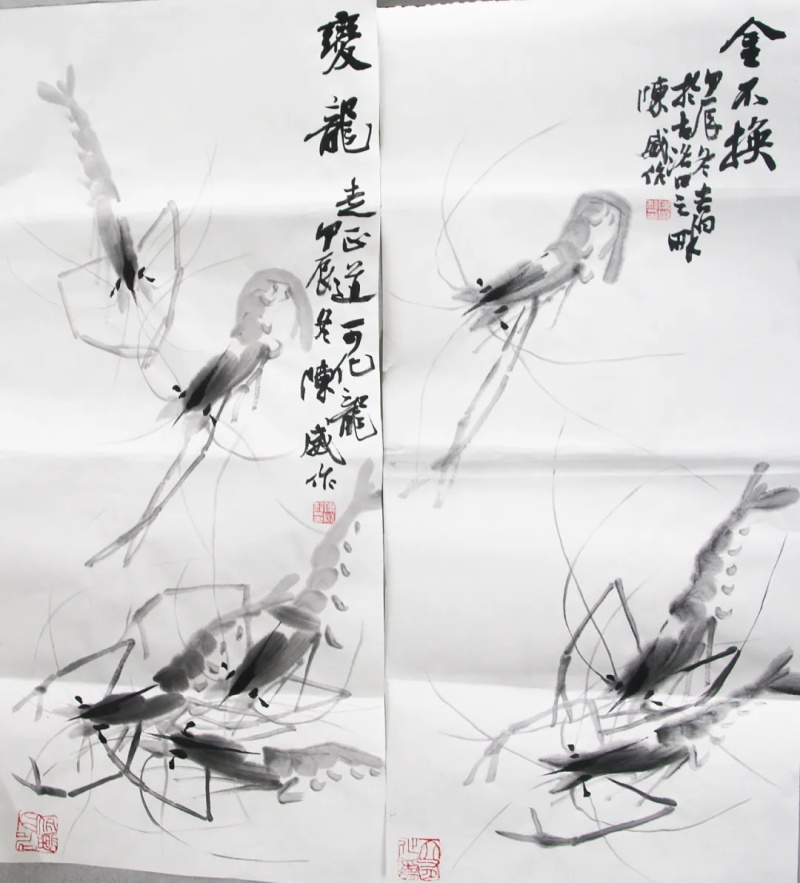 變龍
走正道可化龍
甲辰冬
陳威作
金不換
甲辰冬
於古浛口之畔
陳威作